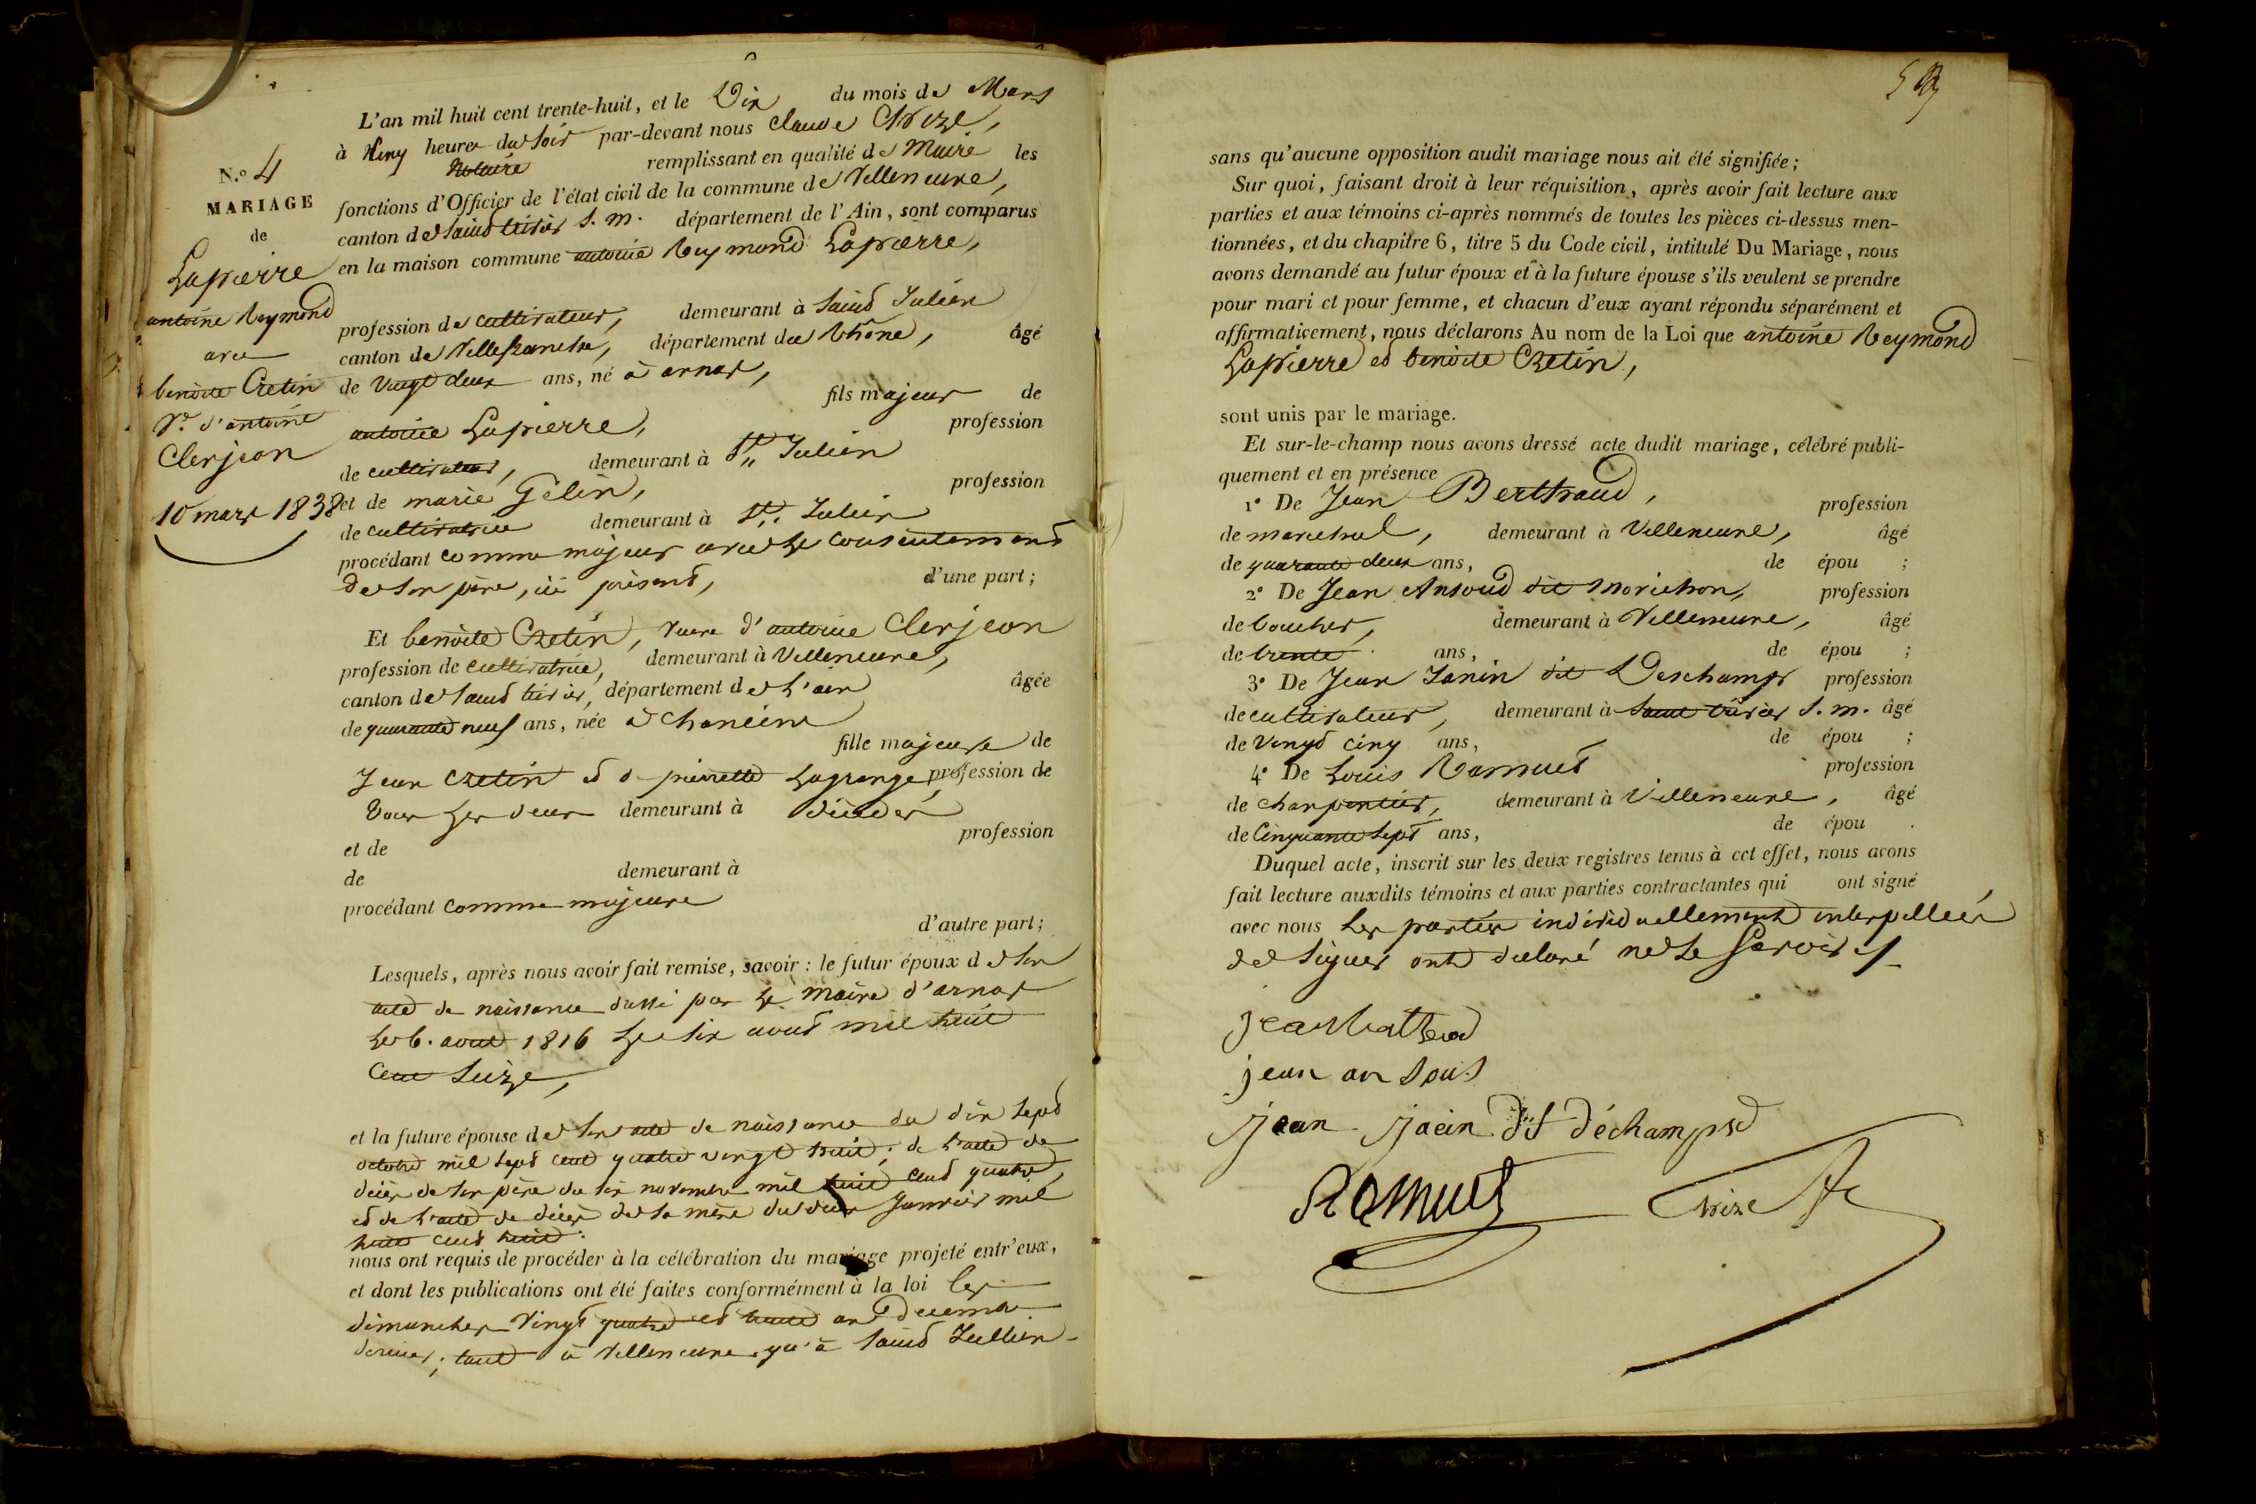 L'an mil huit cent trente-huit, et le Dix du mois de Mars
à cinq heures du soir par-devant nous Claude Chize,
Notaire remplissant en qualité de Maire les
N.o 4
MARIAGE
de
Lapierre
antoine Reymond
avec
benoite Cretin
Ve. d'antoine
Clerjeon
10 mars 1838
fonctions d'Officier de l'état civil de la commune de Villeneuve,
canton de Saint trivier S. m. département de l'Ain, sont comparus
en la maison commune antoine Reymond Lapierre,
profession de cultivateur, demeurant à Saint Julien
canton de Villefranche, département du Rhône, âgé
de vingt deux ans, né à arnas,
fils majeur de
antoine Lapierre, profession
de cultivateur, demeurant à St. Julien
et de marie Gelin, profession
de cultivatrice demeurant à St. Julien
procédant comme majeur avec le consentement
de son père, ici présent, d'une part;
Et benoite Cretin, veuve d'antoine Clerjeon
profession de cultivatrice, demeurant à Villeneuve,
canton de Saint trivier, département de l'ain âgée
de quarante neuf ans, née à Chaneins
fille majeure de
Jean Cretin et d pierrette Lagrange, profession de
tous les deux demeurant à décédés
et de profession
de demeurant à
procédant comme majeure
d'autre part;
Lesquels, après nous avoir fait remise, savoir : le futur époux de son
acte de naissance dressé par le Maire d'arnas
le 6. aout 1816 le six aout mil huit
cent seize,
et la future épouse de son acte de naissance du dix sept
octobre mil sept cent quatre vingt huit; de l'acte de
décès de son père du six novembre mil huit cent quatre,
et de l'acte de décès de sa mère du deux Janvier mil
huit cent huit.
nous ont requis de procéder à la célébration du mariage projeté entr'eux,
et dont les publications ont été faites conformément à la loi les
dimanches vingt quatre et trente un Décembre
dernier; tant à Villeneuve qu'à Saint Jullien
sans qu'aucune opposition audit mariage nous ait été signifiée;
Sur quoi, faisant droit à leur réquisition, après avoir fait lecture aux
parties et aux témoins ci-après nommés de toutes les pièces ci-dessus men-
tionnées, et du chapitre 6, titre 5 du Code civil, intitulé Du Mariage, nous
avons demandé au futur époux et à la future épouse s'ils veulent se prendre
pour mari et pour femme, et chacun d'eux ayant répondu séparément et
affirmativement, nous déclarons Au nom de la Loi que antoine Reymond
Lapierre et benoite Cretin,
sont unis par le mariage.
Et sur-le-champ nous avons dressé acte dudit mariage, célébré publi-
quement et en présence
1° De Jean Berthaud, profession
de marechal, demeurant à Villeneuve, âgé
de quarante deux ans, de épou ;
2° De Jean Ansoud dit Morichon, profession
de boucher, demeurant à Villeneuve, âgé
de trente ans, de épou ;
3° De Jean Janin dit Deschamps profession
de cultivateur, demeurant à Saint trivier S. m. âgé
de vingt cinq ans, de épou ;
4° De Louis Ramuet profession
de charpentier, demeurant à Villeneuve, âgé
de Cinquante sept ans, de épou .
Duquel acte, inscrit sur les deux registres tenus à cet effet, nous avons
fait lecture auxdits témoins et aux parties contractantes qui ont signé
avec nous les parties individuellement interpellées
de signer ont déclaré ne le savoir
jean
jean an Soud
jean jacin dit déchamps
Ramuet Chize